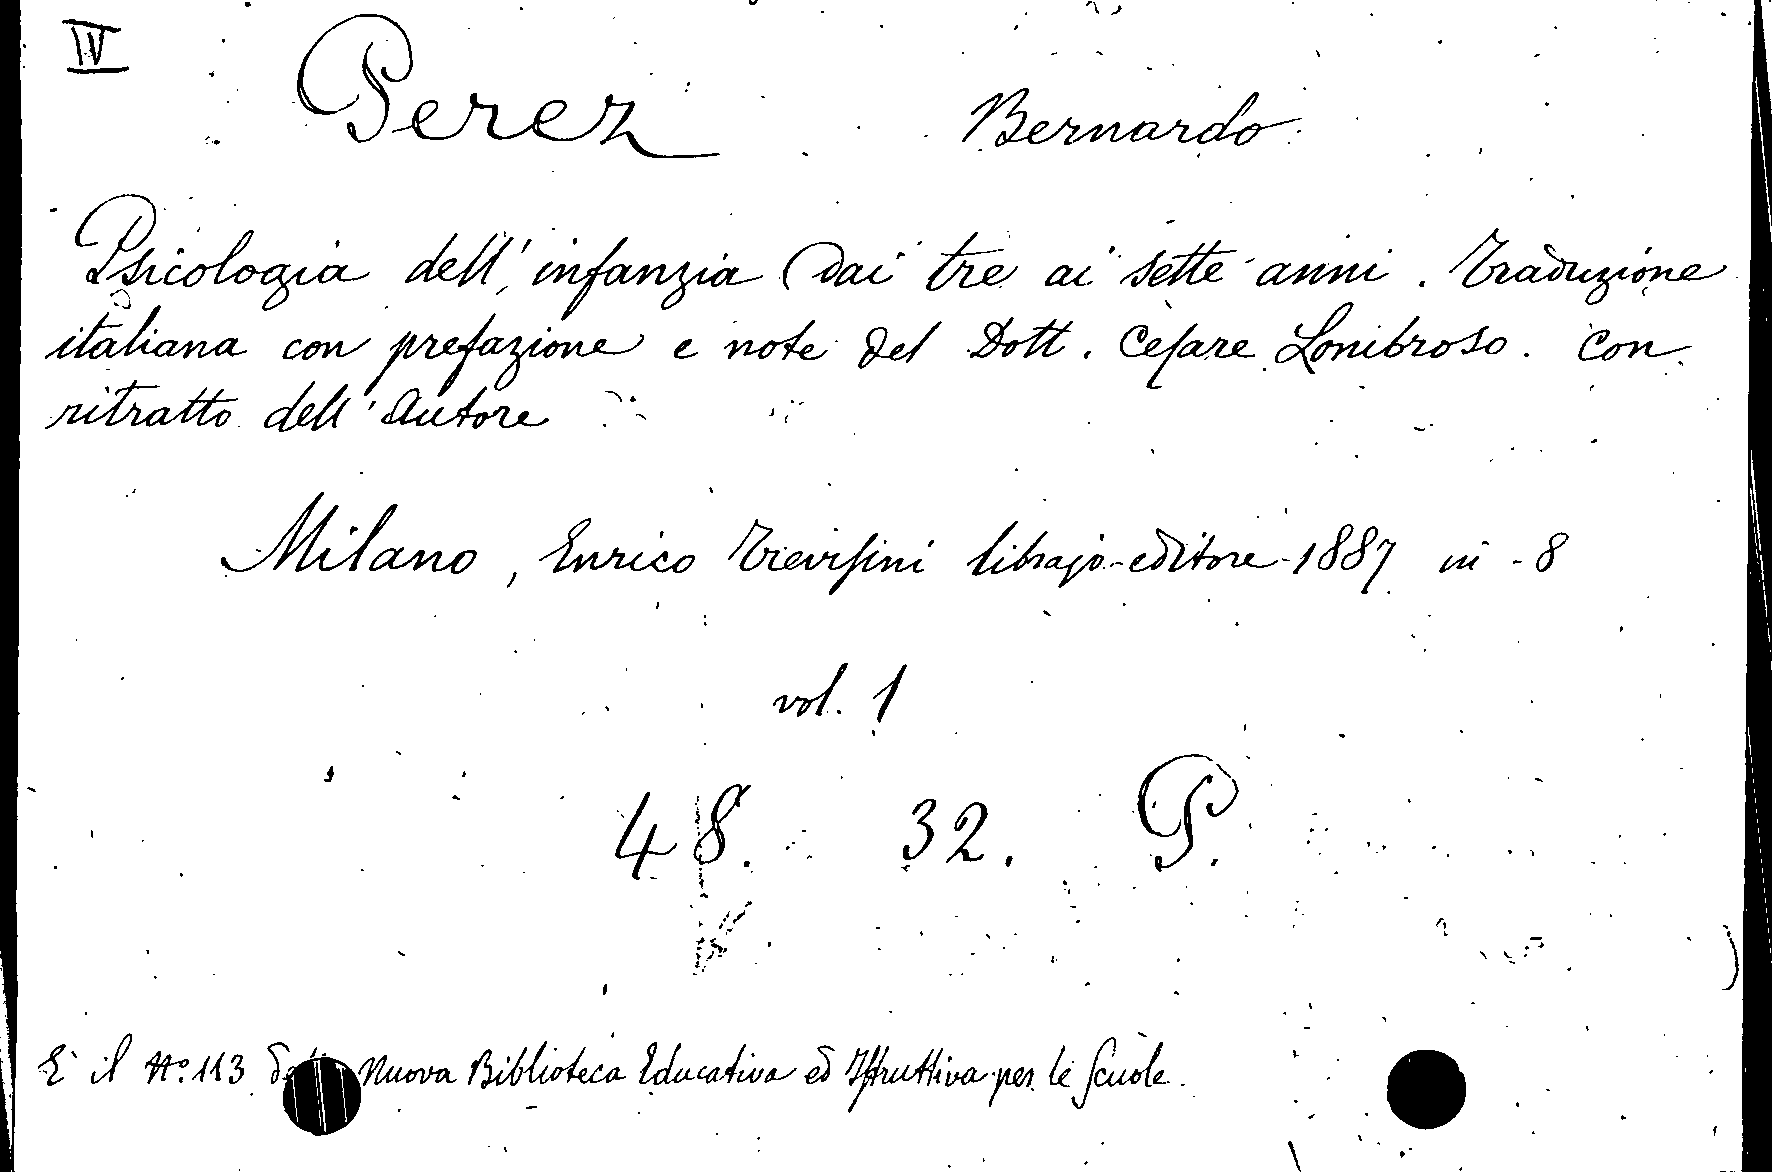 IV
Perez Bernardo
Psicologia dell'infanzia (dai tre ai sette anni. Traduzione
italiana con prefazione e note del Dott. Cesare Lombroso. Con
ritratto dell'Autore
Milano, Enrico Trevisini librajo-editore-1887 in-8
vol. 1
48. 32. P.
E' il N.º 113 Nuova Biblioteca Educativa ed Istruttiva per le Scuole.